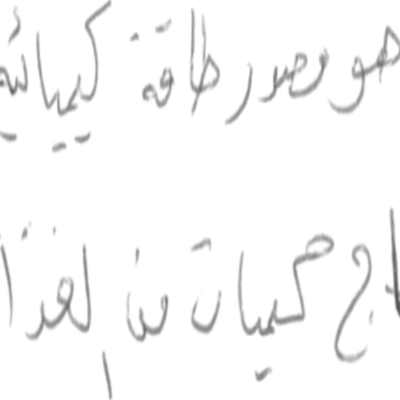 هو مصدر طاقة كيميائية
اج كميات من الغذا